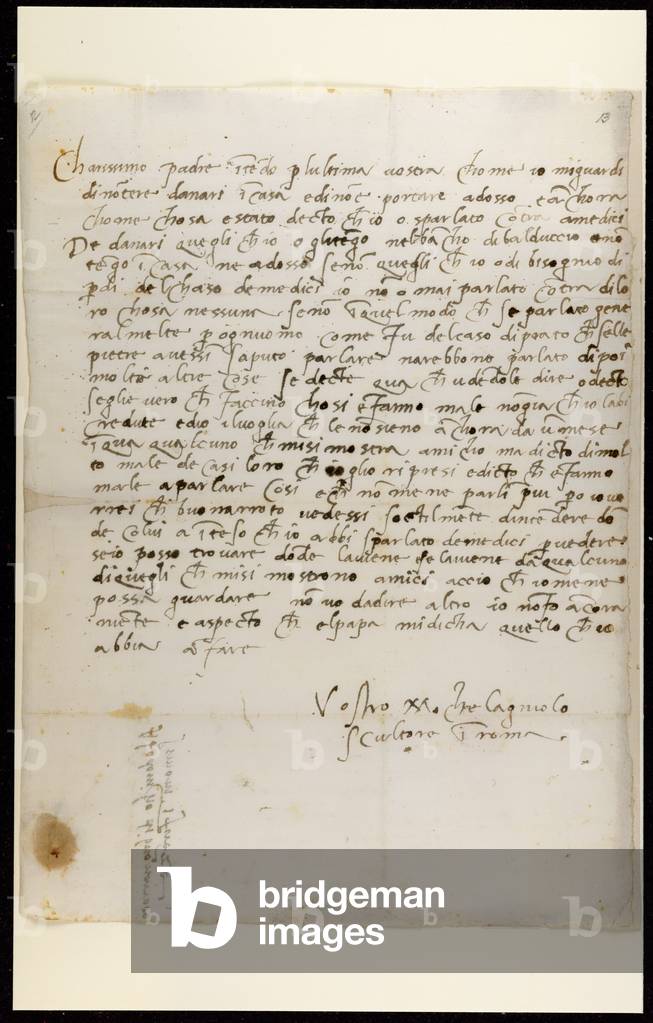 13
Charissimo padre i tēdo p lultima vostra chome io miguardi
di nō tere danari ī casa e di nō portare adosso e āchora
chome chosa estato decto ch io o sparlato cōtra a medici
De danari quegli ch io o gli tēgo nel bācho di balduccio e nō
tēgo ī casa ne adosso se nō quegli ch io o di bisognio di
p di del chaso de medici io nō o mai parlato cōtra di lo
ro chosa nessuna se nō ī quel modo ch s e parlato gene
ralmēte p ogn uomo come fu del caso di prato ch se lle
pietre avessi saputo parlare n arebbono parlato di poi
molte altre cose s e decte qua ch udēdole dire o decto
s egli e vero ch faccino chosi e fanno male nō gia ch io l abi
credute e dio il voglia ch le nō sieno āchora da u mese
ī qua qualcuno ch mi si mostra amicho m a dicto di mol
to male de casi loro ch io gli o ripresi e dicto ch e fanno
male a parlare cosi e ch nō me ne parli piu po io vo
rrei ch buonarroto vedessi soctilmente d intēdere dō
de colui a īteso ch io abbi sparlato de medici p vedere
se io posso trovare dōde la viene e se la viene da qualcuno
di quegli ch mi si mostrono amici accio ch io me ne
possa guardare nō v o da dire altro io nō fo ācora
niente e aspecto ch el papa mi dicha quello ch io
abbia a fare
Vostro Michelagniolo
scultore ī roma
bridgeman
images